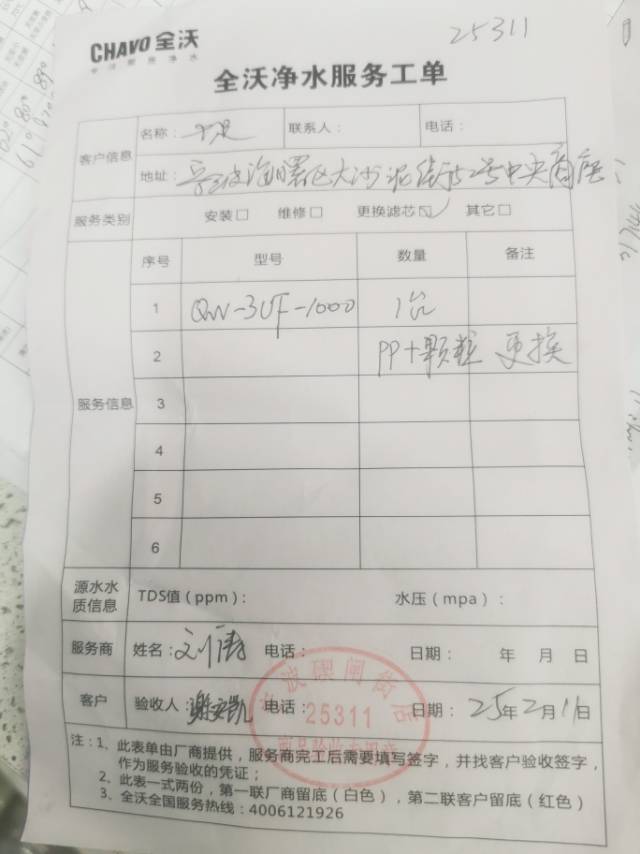 CHAVO 全沃
25311
全沃净水服务工单
客户信息
名称： 联系人： 电话：
地址： 宁波海曙区大沙泥街52号中央商座
服务类别 安装□ 维修□ 更换滤芯☑ 其它□
服务信息
序号 型号 数量 备注
1 QW-3UF-1000 1台
2 PP+颗粒 更换
3
4
5
6
源水水质信息 TDS值（ppm）： 水压（mpa）：
服务商 姓名： 电话： 日期： 年 月 日
客户 验收人：谢安凯 电话： 日期： 25年2月11日
25311
注：1、此表单由厂商提供，服务商完工后需要填写签字，并找客户验收签字，
作为服务验收的凭证；
2、此表一式两份，第一联厂商留底（白色），第二联客户留底（红色）
3、全沃全国服务热线：4006121926